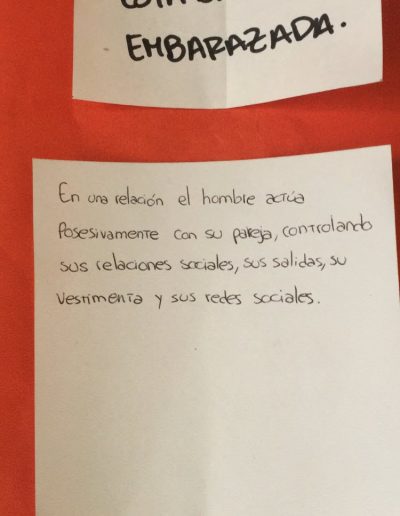 EMBARAZADA.
En una relación el hombre actúa
Posesivamente con su pareja, controlando
sus relaciones sociales, sus salidas, su
vestimenta y sus redes sociales.